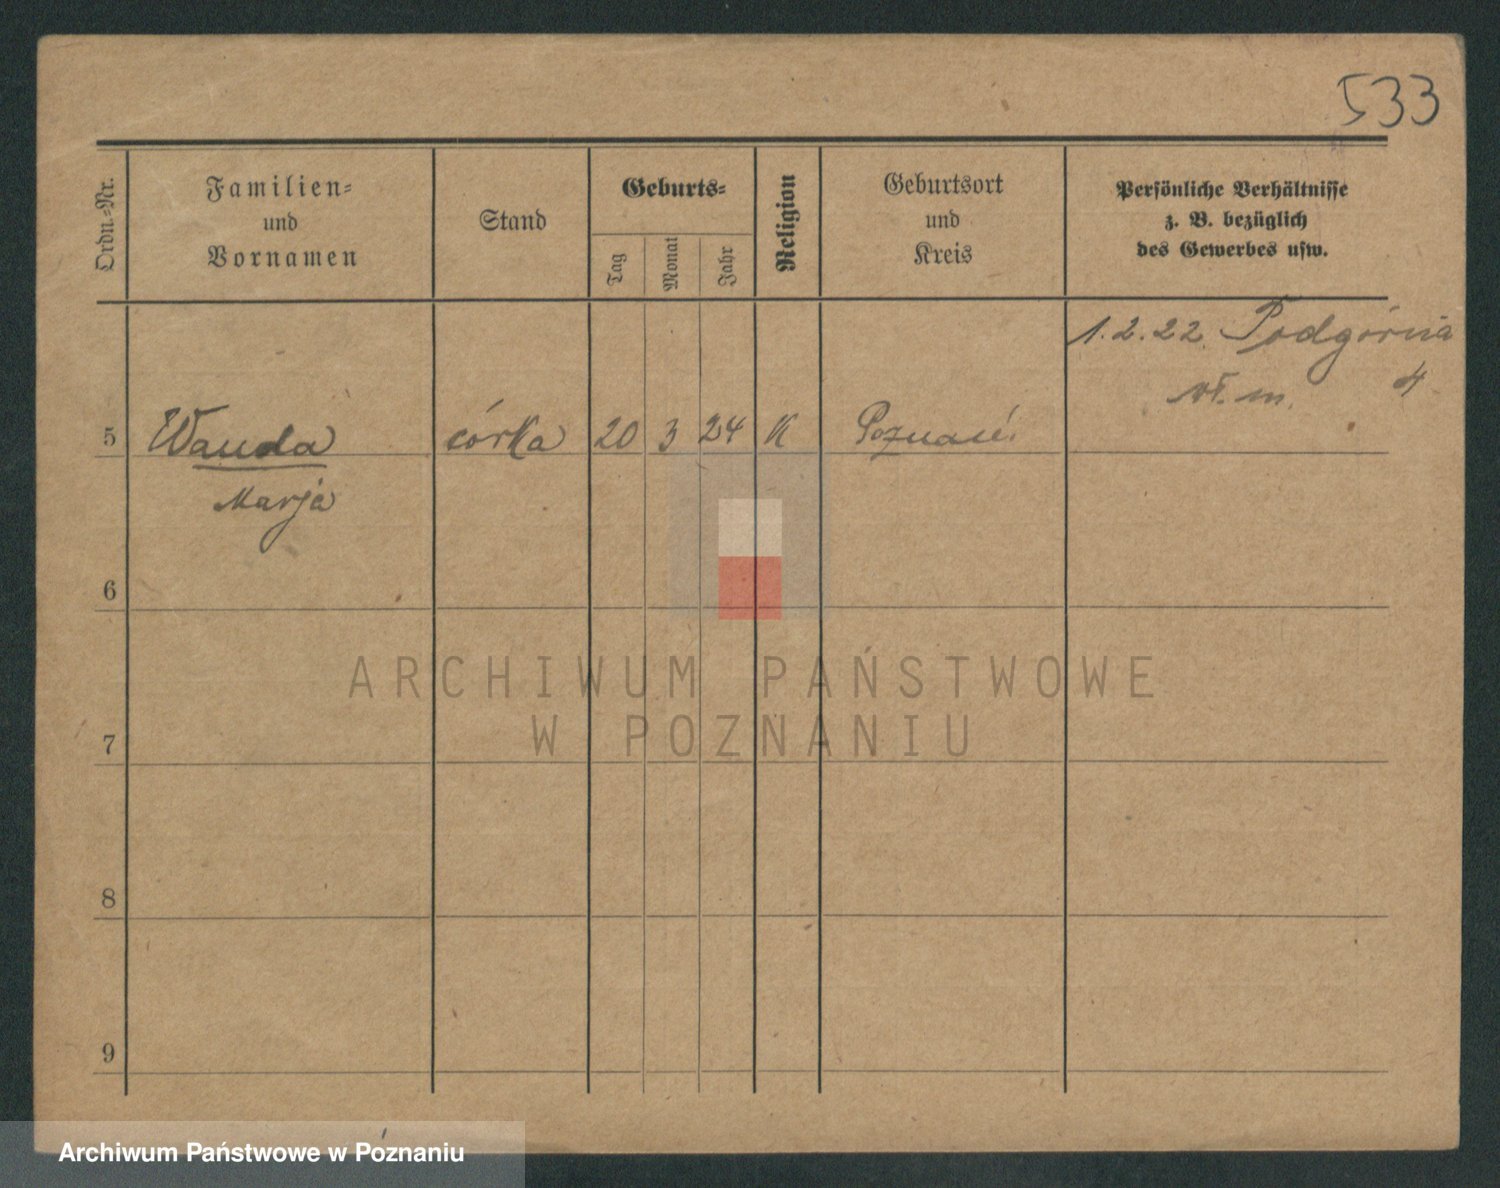 533
Ordn.-Nr.
Familien-
und
Vornamen
Stand
Geburts-
Tag
Monat
Jahr
Religion
Geburtsort
und
Kreis
Persönliche Verhältnisse
z. B. bezüglich
des Gewerbes usw.
1.2.22. Podgórna
wł. m. 4
5 Wanda córka 20 3 24 K Poznań.
Marja
6
ARCHIWUM PAŃSTWOWE
W POZNANIU
7
8
9
Archiwum Państwowe w Poznaniu